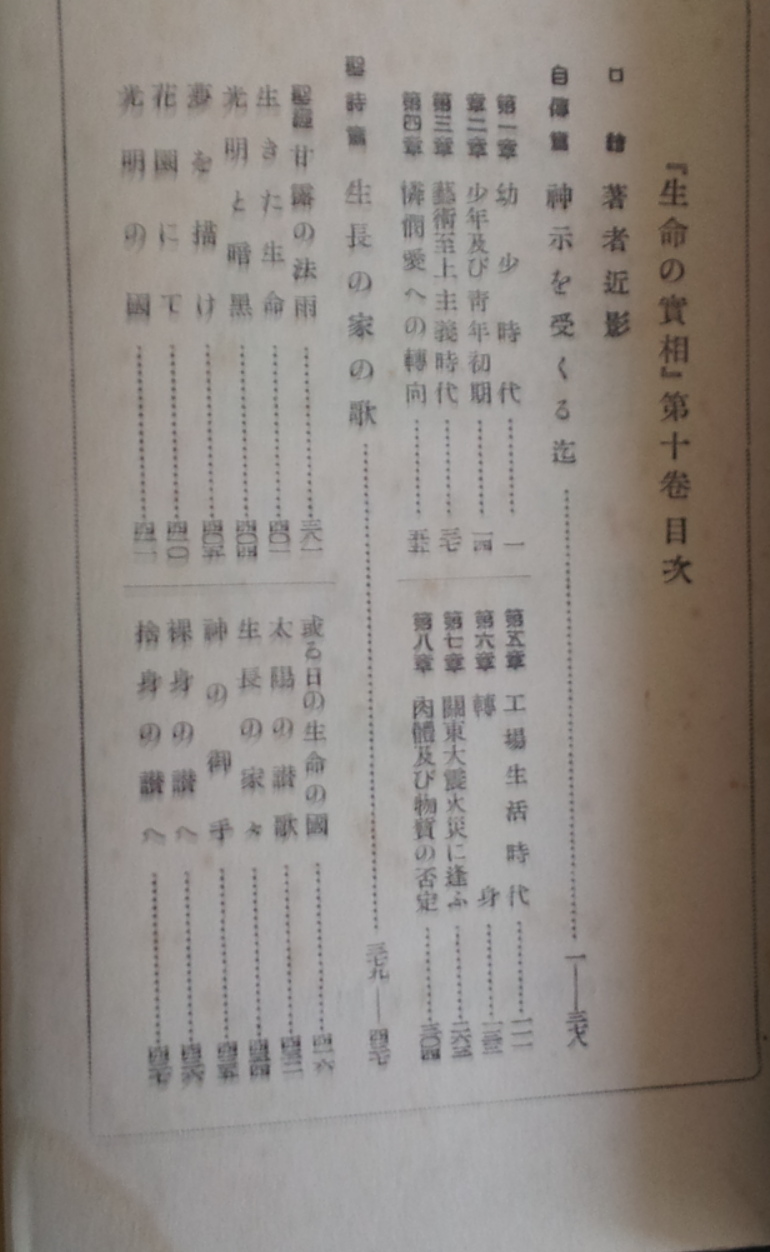 『生命の實相』第十卷 目次
口繪 著者近影
自傳篇 神示を受くる迄……一――三七八
第一章 幼少時代……一
第二章 少年及び靑年初期……一四
第三章 藝術至上主義時代……三七
第四章 憐憫愛への轉向……五五
第五章 工場生活時代……一一一
第六章 轉身……一三三
第七章 關東大震火災に逢ふ……二六三
第八章 肉體及び物質の否定……三〇四
聖詩篇 生長の家の歌……三七九――四三七
聖經 甘露の法雨……三八一
生きた生命……四〇一
光明と暗黑……四〇四
夢を描け……四〇五
花園にて……四一〇
光明の國……四一一
或る日の生命の國……四一六
太陽の讃歌……四二二
生長の家々……四三四
神の御手……四三五
裸身の讃へ……四三六
捨身の讃へ……四三七